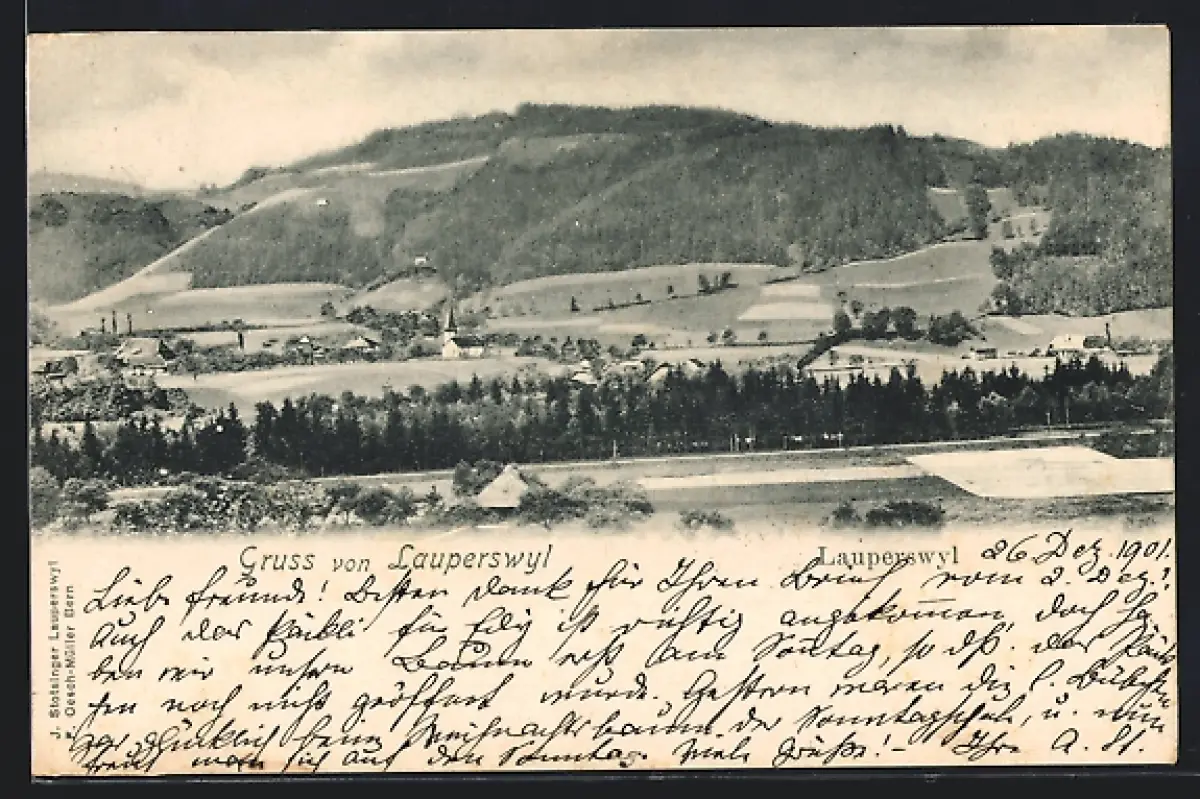 Gruss von Lauperswyl
Lauperswyl 26 Dez. 1901.
Liebe Freunde! Besten Dank für Ihren Brief vom 2. Dez.!
Auch das Päckli für Edy ist richtig angekommen, doch ha-
ben wir unsern Baum erst am Sonntag, so dß. das Päck-
chen noch nicht geöffnet wurde. Gestern waren die l. Bübchen
glücklich beim Weihnachtsbaum der Sonntagschule, u. nun
freut man sich auf den Sonntag. Viele Grüße! - Ihre A. St.
J. Stotzinger Lauperswyl
F. Oesch-Müller Bern